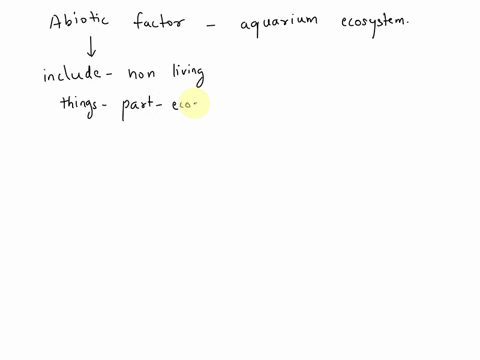 Abiotic factor - aquarium ecosystem.
↓
include - non living
things - part - eco-